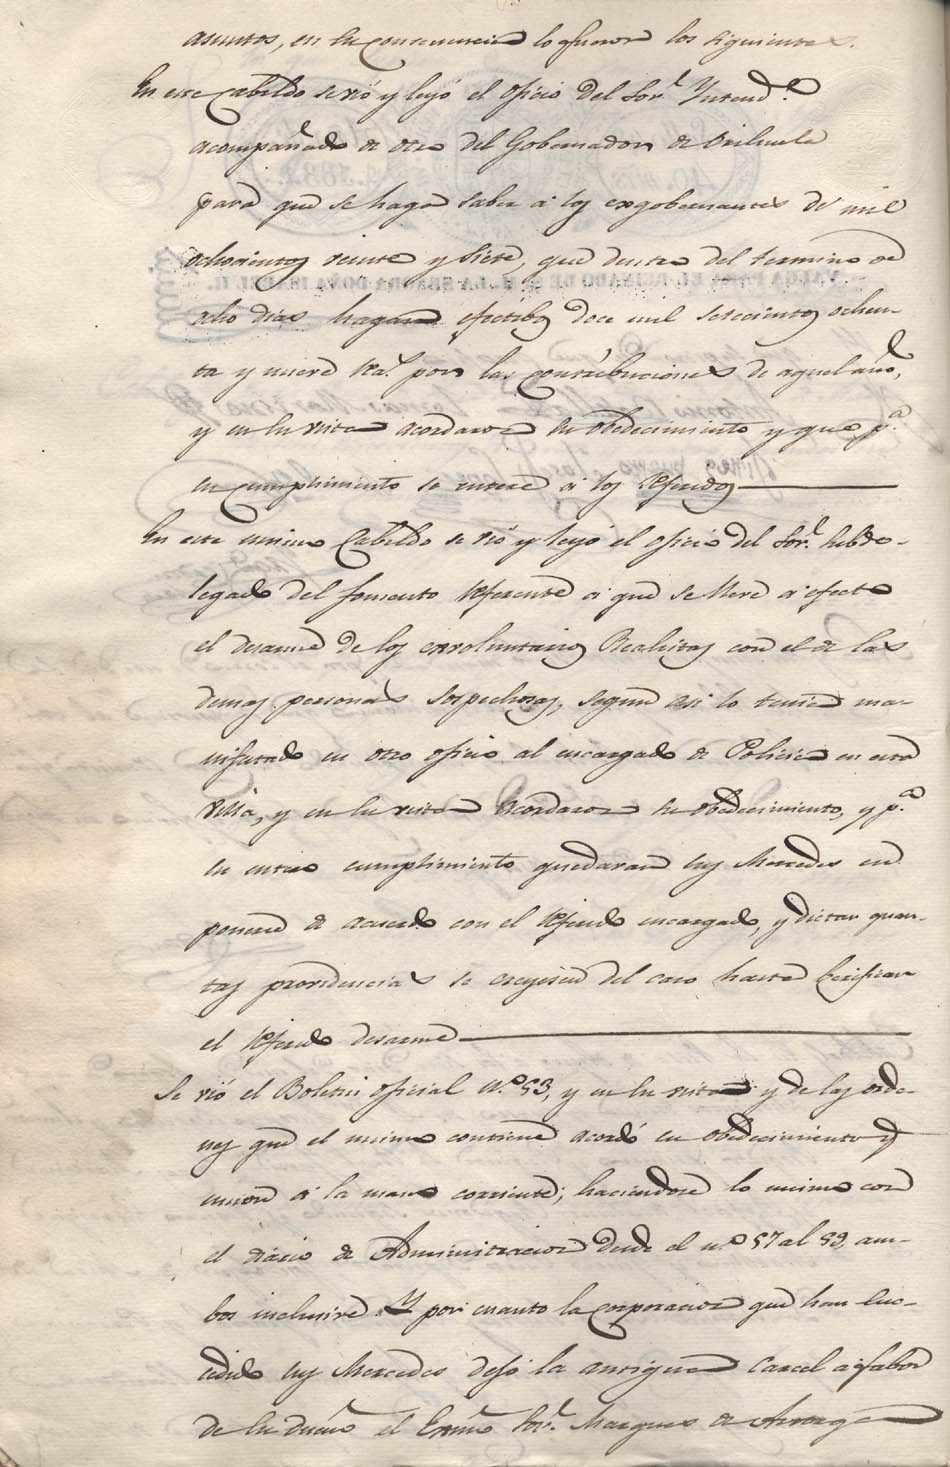 asuntos, en su consecuencia lo fueron los siguientes.
En este Cabildo se vió y leyó el oficio del Sor. Yntendte.
acompañado de otro del Gobernador de Orihuela
para que se haga saber a los exgobernantes de mil
ochocientos veinte y siete, que dentro del termino de
ocho dias hagan efectibos doce mil setecientos ochen-
ta y nueve rs. por las contribuciones de aquel año,
y en su vista acordaron su obedecimiento y que pa.
su cumplimiento se entere a los referidos
En este mismo Cabildo se vió y leyó el oficio del Sor. Subde-
legado del fomento referente a que se lleve a efecto
el desarme de los exvoluntarios Realistas con el de las
demas personas sospechosas, segun asi lo tenia ma-
nifestado en otro oficio al encargado de Policia en esta
Villa, y en su vista acordaron su obedecimiento, y pa.
su entero cumplimiento quedaran sus Mercedes en
ponerse de acuerdo con el referido encargado, y dictar quan-
tas providencias se exsijiesen del caso hasta berificar
el referido desarme
Se vió el Boletin oficial n.o 53, y en su vista y de las orde-
nes que el mismo contiene acordó su obedecimiento y
union a la mano corriente; haciendose lo mismo con
el diario de Administracion desde el n.o 57 al 59, am-
bos inclusive. Y por cuanto la corporacion que han suc-
cedido sus Mercedes dejó la antigua Carcel a fabor
de su dueño el Exmo. Sor. Marques de